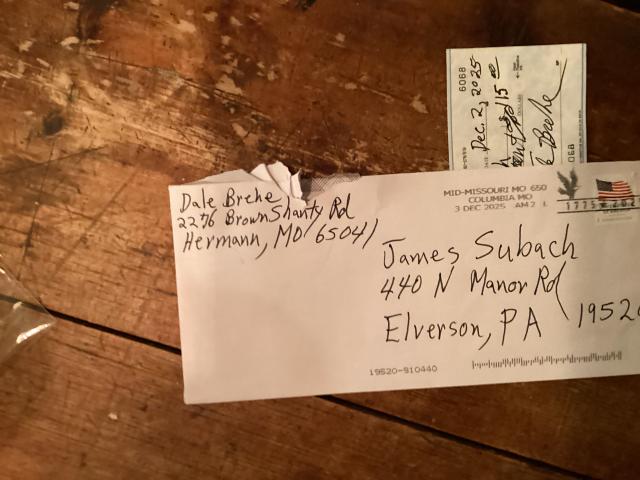 6068
Dec. 2, 2025
15 00
Dale Brehe
2276 Brown Shanty Rd
Hermann, MO 65041
MID-MISSOURI MO 650
COLUMBIA MO
3 DEC 2025 AM 2 L
James Subach
440 N Manor Rd
Elverson, PA 1952
19520-910440